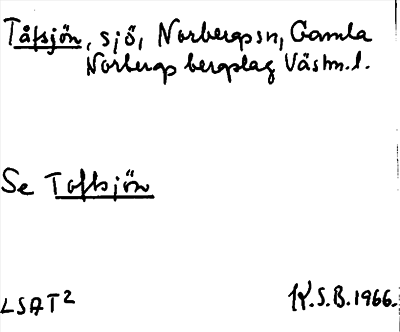 Tåfsjön, sjö, Norbergssn, Gamla
Norbergs bergslag Västm.l.
Se Toftsjön
LSAT²
K.S.B. 1966.